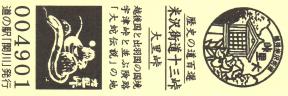 大里峠
歴史の道百選
米沢街道十三峠
大里峠
越後国と出羽国の国境
宇津峠と並ぶ険路
「大蛇伝説」の地
004901
道の駅「関川」発行